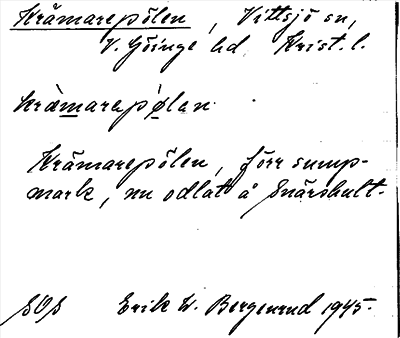 Krämarepölen, Vittsjö sn,
V. Göinge hd Krist. l.
kràmarepø̀lən.
Krämarepölen, förr sump-
mark, nu odlat å Snärshult.
SOS Erik W. Bergenrud 1945.